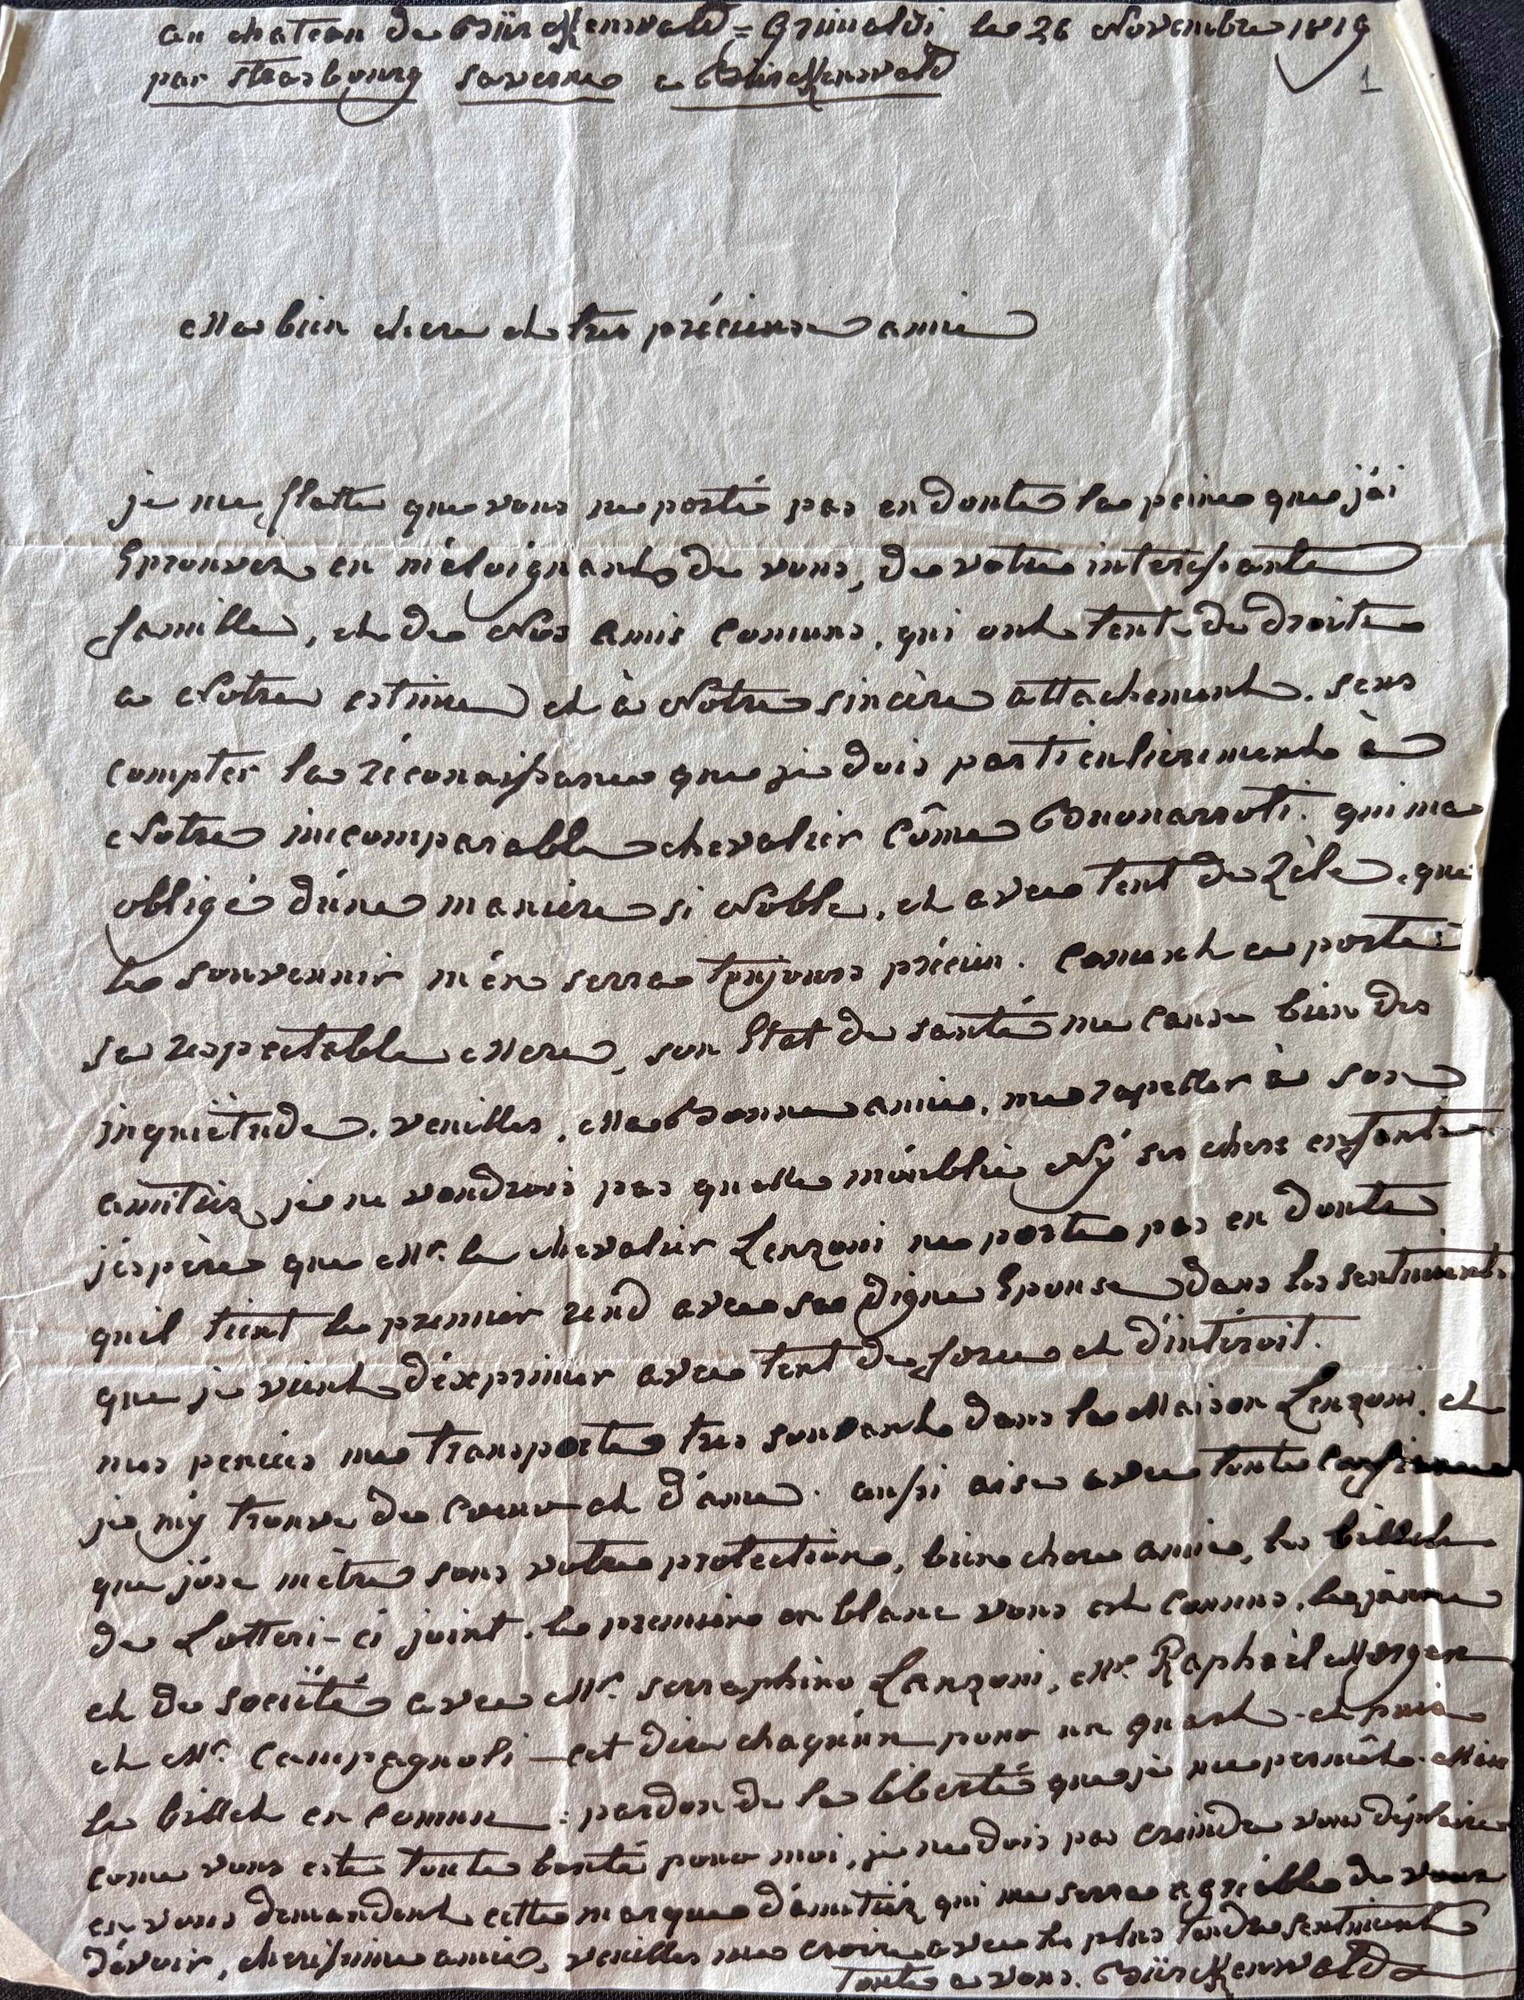 au chateau de Bürckenwald = Grimaldi le 26 Novembre 1819
par strasbourg saverne a Bürckenwald
1
Ma bien chere et tres précieuse amie
je me flatte que vous ne porté pas en doute la peine que j'ai
Eprouvez en m'éloignant de vous, de votre interessante
famille, et de Nos amis comuns, qui ont tent de droite
a Notre estime et à Notre sincère attachement. sens
compter la réconaissance que je dois particulierement à
Notre incomparable chevalier Côme Buonarroti. qui ma
obligé d'une manière si Noble, et avec tent de Zèle, que
le souvennir m'en serra toujours précieu. Coment ce porte
sa respectable Mere, son Etat de santé me cause bien des
inquiëtude. veuilles, Ma Bonne amie, me rapeller à son
amitiez, je ne voudrois pas quelle m'oublie Ny ses chers enfants
j'espère que Mr. le chevalier Lenzoni ne porte pas en doute
quil tient le premier rend avec sa digne Epouse dans les sentiments
que je vient d'exprimer avec tent de force et d'intéroit.
mes pencées me transporte tres souvant dans la Maison Lenzoni, et
je m'y trouve de Coeur et d'âme. aussi aise avec toute confiance
que j'ose mètre sous votre protection, bien chere amie, les billets
de Lotteri-ci joint. le premier en blanc vous est connus, le jaune
et de sociëté avec Mr. serraphino Lanzoni, Mr. Raphaël Morgen
et Mr. Campagnoli - cet dire chaqu'un pour un quart - et puis
le billet en comun : pardon de la liberté que je me permêt. Mais
come vous este toute bonté pour moi, je ne dois pas creindre vous déplaire
en vous demandent cette marque d'amitiéz qui me serra agréable de vous
d'évoir, cherissime amie, veuilles me croire avec les plus tendre sentiment
toute a vous. Bürckenwald